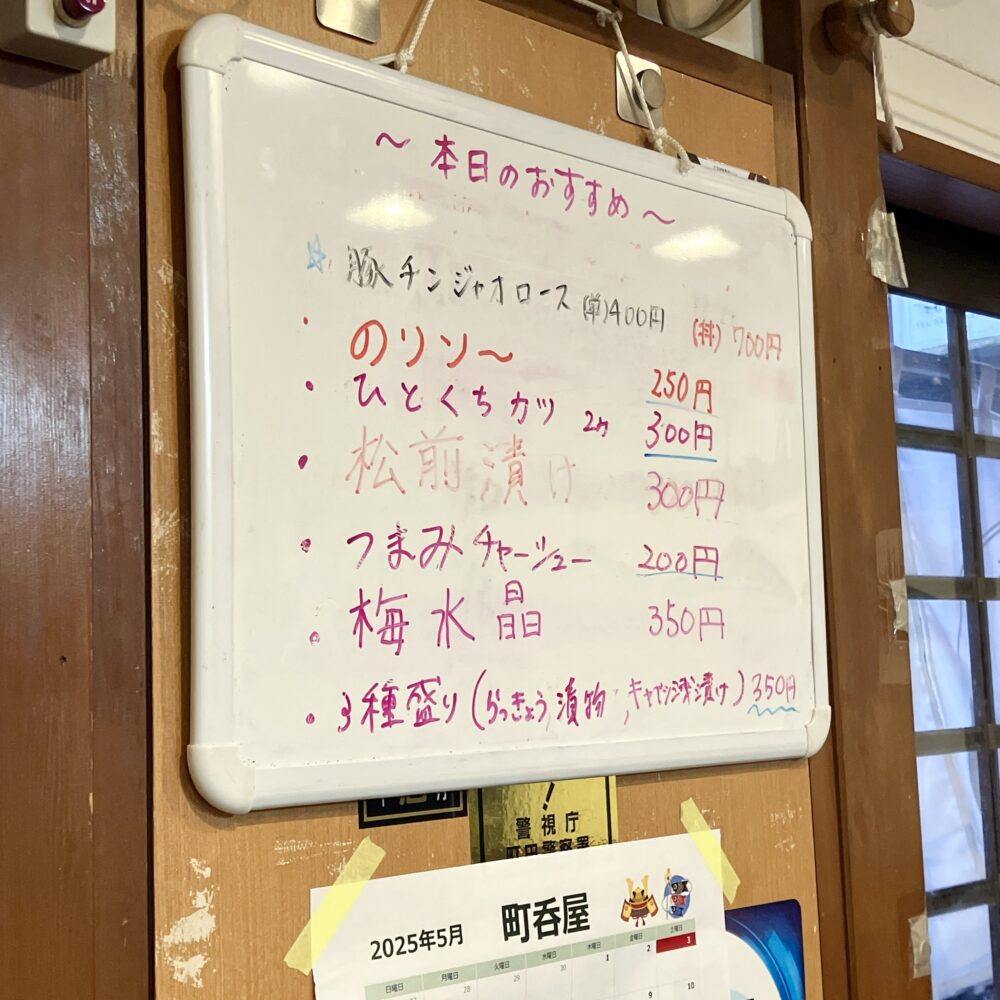 ～本日のおすすめ～
☆豚チンジャオロース (単)400円 (丼)700円
・のリソ～ 250円
・ひとくちカツ 2ヶ 300円
・松前漬け 300円
・つまみチャーシュー 200円
・梅水晶 350円
・3種盛り(らっきょう,漬物,キャベツ浅漬け)350円
!
警視庁
町田警察署
2025年5月 町呑屋
日曜日 月曜日 火曜日 水曜日 木曜日 金曜日 土曜日
28 29 30 1 2 3
9 10